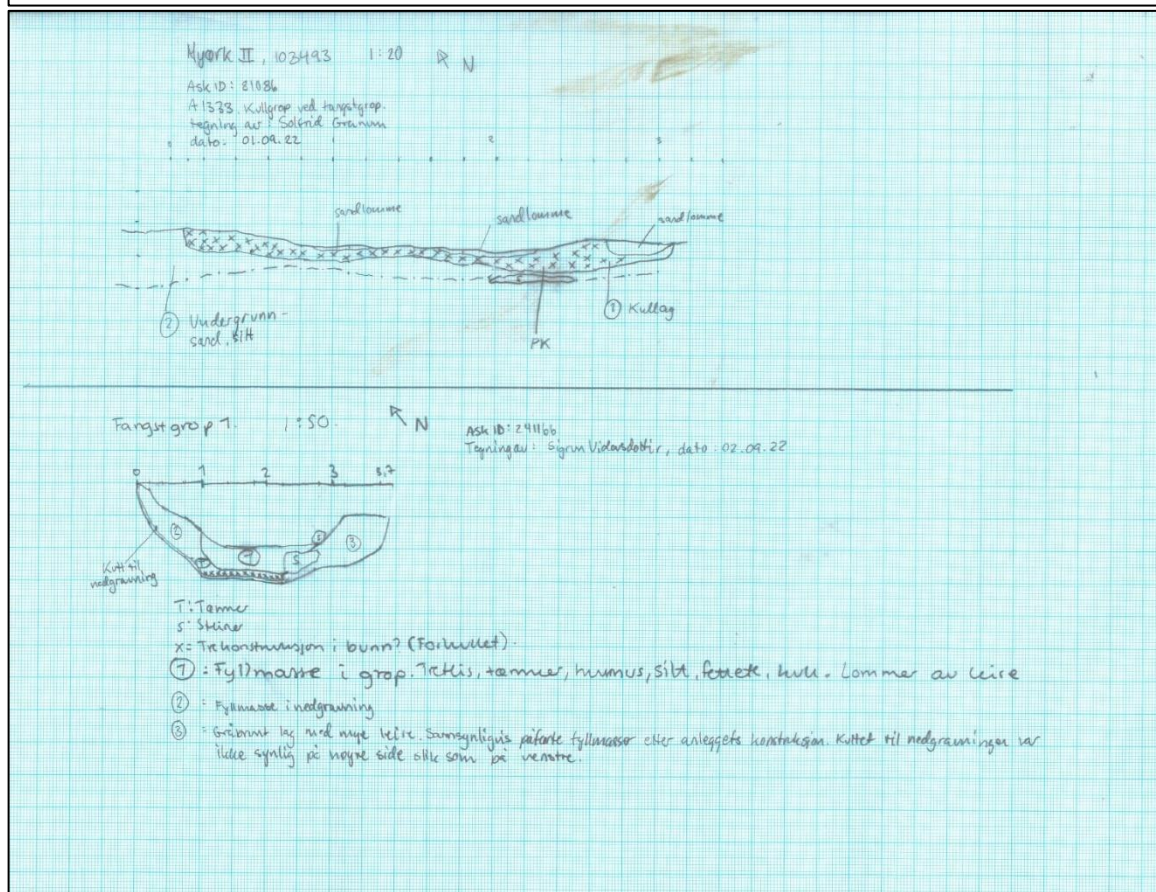 Myørk II, 103493 1:20 N
Ask ID: 81086
A1333. Kullgrop ved fangstgrop.
tegning av: Solfrid Granum
dato. 01.09.22
2 3
sandlomme sandlomme sandlomme
② Undergrunn -
sand, silt
PK
① Kullag
Fangstgrop 1. 1:50. N
Ask ID: 241166
Tegning av: Sigrun Vidarsdottir, dato. 02.09.22
0 1 2 3 3,7
② T 1 S S ③
Kutt til
nedgravning
T: Tømmer
S: Steiner
X= Trekonstruksjon i bunn? (Forkullet).
①: Fyllmasse i grop. tømmer, humus, silt, kull. Lommer av leire
②: Fyllmasse i nedgravning
③: Gråbrunt lag med mye leire. Sannsynligvis påførte fyllmasser etter anleggets konstruksjon. Kuttet til nedgravningen var
ikke synlig på høyre side slik som på venstre.